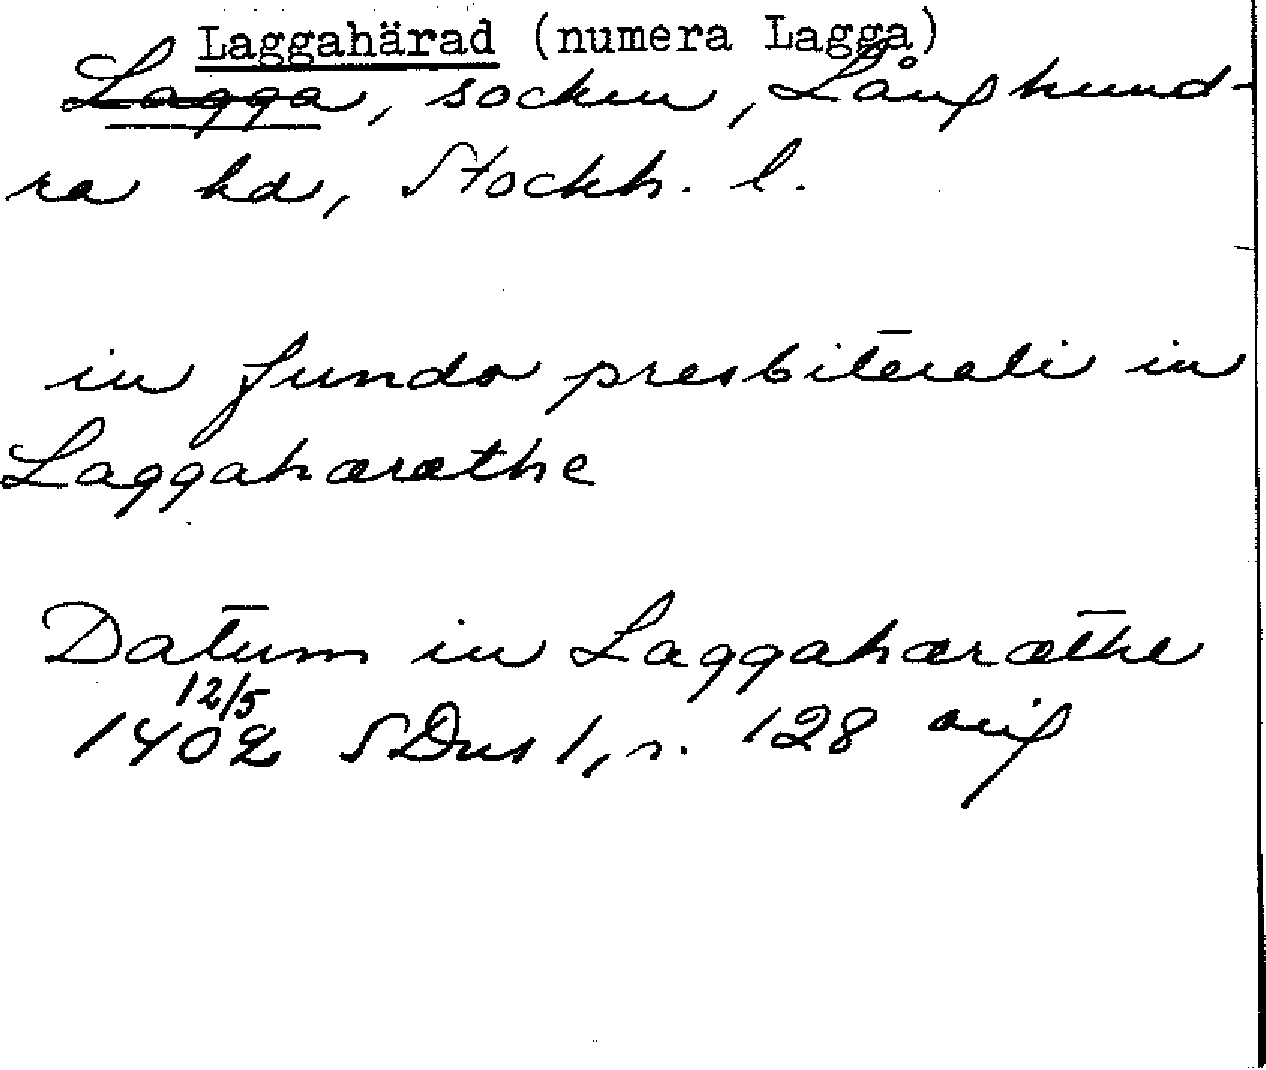 Laggahärad (numera Lagga)
Lagga, socken, Långhund-
ra hd, Stockh. l.
in fundo presbiterali in
Laggahæræthe
Datum in Laggahæræthe
12/5
1402 SDns 1, n. 128 orig